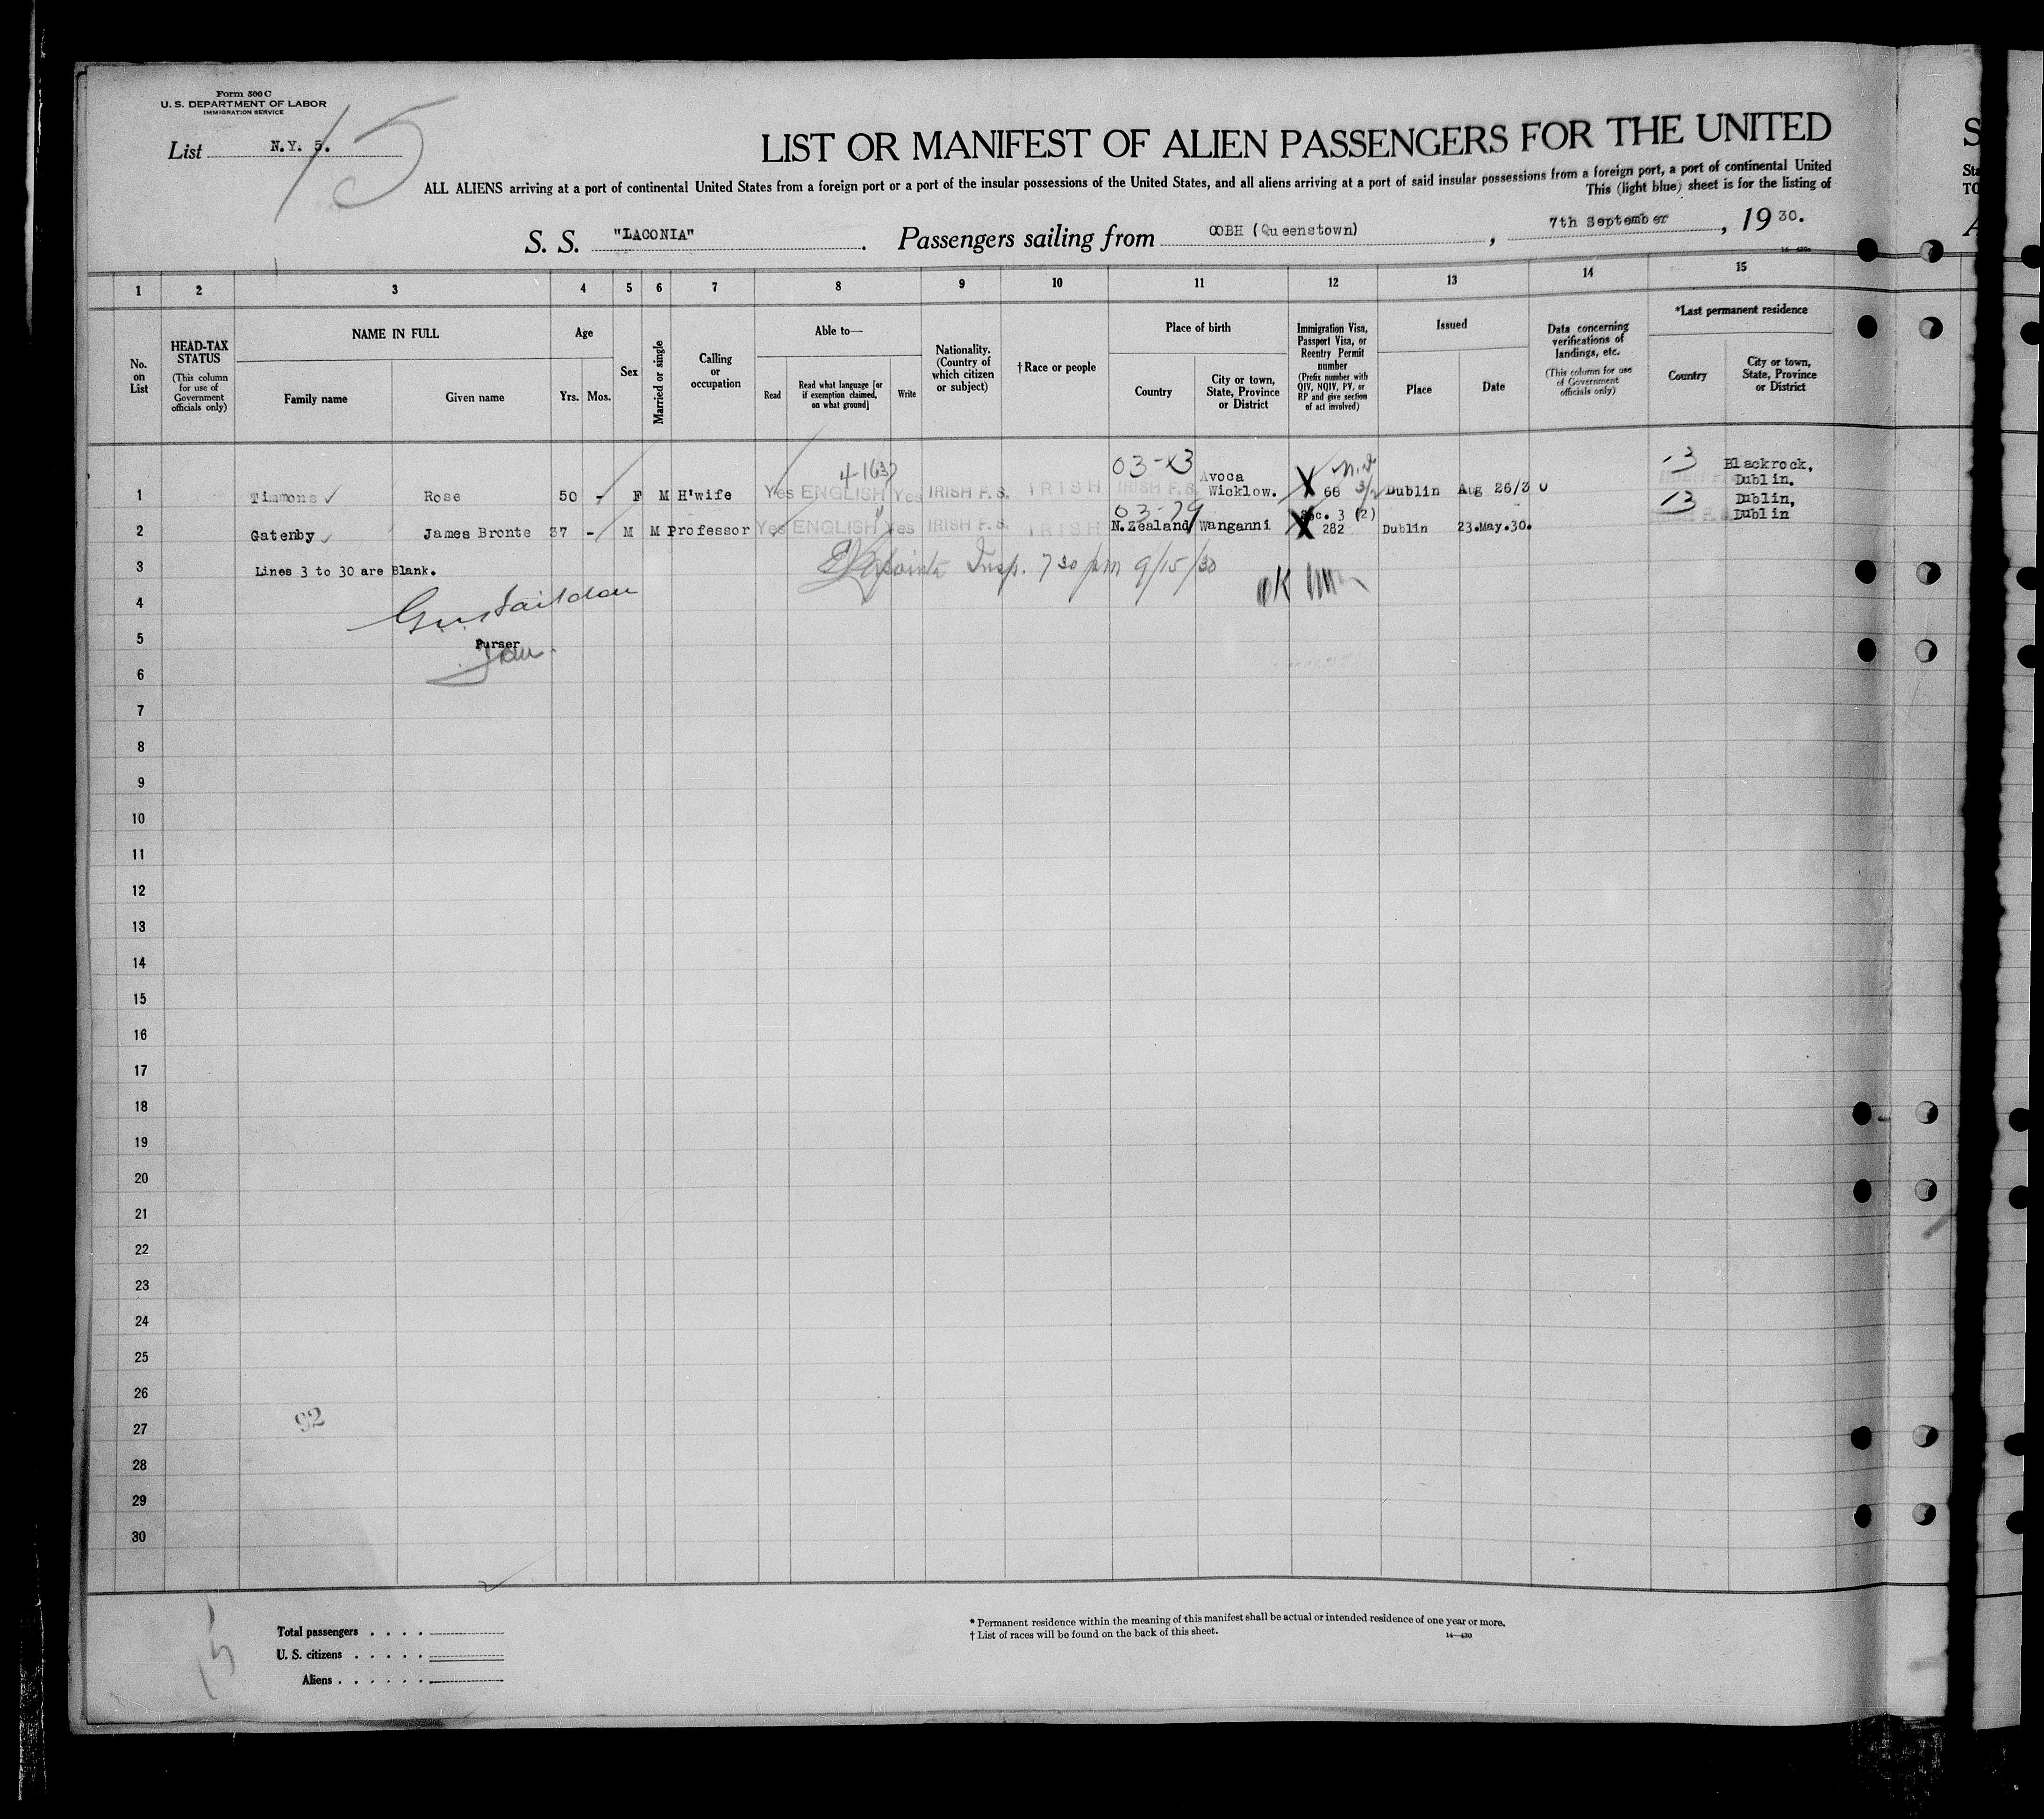 Form 500 C
U. S. DEPARTMENT OF LABOR
IMMIGRATION SERVICE
List N.Y. 5.
15
LIST OR MANIFEST OF ALIEN PASSENGERS FOR THE UNITED
ALL ALIENS arriving at a port of continental United States from a foreign port or a port of the insular possessions of the United States, and all aliens arriving at a port of said insular possessions from a foreign port, a port of continental United
This (light blue) sheet is for the listing of
S. S. "LACONIA" . Passengers sailing from COBH (Queenstown) , 7th September , 19 30.
1 2 3 4 5 6 7 8 9 10 11 12 13 14 15
No. on List
HEAD-TAX STATUS
(This column for use of Government officials only)
NAME IN FULL
Family name Given name
Age
Yrs. Mos.
Sex
Married or single
Calling or occupation
Able to—
Read
Read what language [or if exemption claimed, on what ground]
Write
Nationality. (Country of which citizen or subject)
†Race or people
Place of birth
Country
City or town, State, Province or District
Immigration Visa, Passport Visa, or Reentry Permit number
(Prefix number with QIV, NQIV, PV, or RP and give section of act involved)
Issued
Place Date
Data concerning verifications of landings, etc.
(This column for use of Government officials only)
*Last permanent residence
Country
City or town, State, Province or District
03-x3 Avoca Blackrock,
1 Timmons Rose 50 - F M H'wife Yes ENGLISH Yes IRISH F. S. IRISH IRISH F. S. Wicklow. X 66 Dublin Aug 26/30 Dublin.
03-79 Sec. 3 (2) Dublin,
2 Gatenby James Bronte 37 - M M Professor Yes ENGLISH Yes IRISH F. S. IRISH N.Zealand Wanganni X 282 Dublin 23.May.30. Dublin
3 Lines 3 to 30 are Blank.
Insp. 7 30 pm 9/15/30
OK
4
5 Purser
6
7
8
9
10
11
12
13
14
15
16
17
18
19
20
21
22
23
24
25
26
27
92
28
29
30
15
Total passengers . . . .
U. S. citizens . . . . .
Aliens . . . . . .
* Permanent residence within the meaning of this manifest shall be actual or intended residence of one year or more.
† List of races will be found on the back of this sheet.
14—430